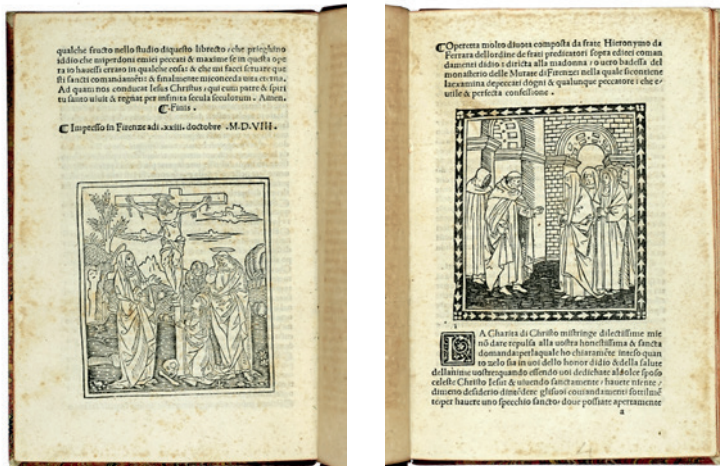 qualche fructo nello studio diquesto librecto/che prieghino
iddio che miperdoni emiei peccati & maxime se in questa ope
ra io hauessi errato in qualche cosa: & che mi facci seruare que
sti sancti comandamēti & finalmente miconceda uita eterna.
Ad quam nos conducat Iesus Christus/qui cum patre & spiri
tu sancto uiuit & regnat per infinita secula seculorum. Amen.
Finis.
Impresso in Firenze adi .xxiii. doctobre .M.D.VIII.
Operetta molto diuota composta da frate Hieronymo da
Ferrara dellordine de frati predicatori sopra edieci coman
damenti didio: diricta alla madonna/o uero badessa del
monasterio delle Murate di Firenze: nella quale sicontiene
la examina depeccati dogni & qualunque peccatore: che e/
utile & perfecta confessione.
LA Charita di Christo mistringe dilectissime mie
nō dare repulsa alla uostra honestissima & sancta
domanda: perlaquale ho chiaramēte inteso quan
to zelo sia in uoi dello honor didio & della salute
dellanime uostre: quando essendo uoi dedichate aldolce sposo
celeste Christo Iesu & uiuendo sanctamente/hauete niente/
dimeno desiderio dintēdere glisuoi comandamenti sottilmē
te: per hauere uno specchio sancto: doue possiate apertamente
a